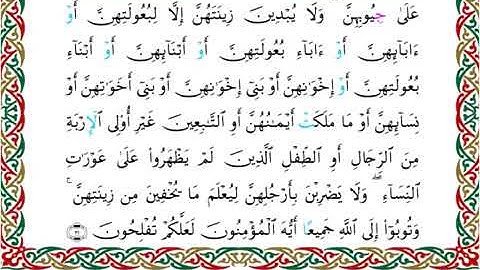 عَلَىٰ جُيُوبِهِنَّ ۖ وَلَا يُبْدِينَ زِينَتَهُنَّ إِلَّا لِبُعُولَتِهِنَّ أَوْ
ءَابَآئِهِنَّ أَوْ ءَابَآءِ بُعُولَتِهِنَّ أَوْ أَبْنَآئِهِنَّ أَوْ أَبْنَآءِ
بُعُولَتِهِنَّ أَوْ إِخْوَٰنِهِنَّ أَوْ بَنِىٓ إِخْوَٰنِهِنَّ أَوْ بَنِىٓ أَخَوَٰتِهِنَّ أَوْ
نِسَآئِهِنَّ أَوْ مَا مَلَكَتْ أَيْمَٰنُهُنَّ أَوِ ٱلتَّٰبِعِينَ غَيْرِ أُو۟لِى ٱلْإِرْبَةِ
مِنَ ٱلرِّجَالِ أَوِ ٱلطِّفْلِ ٱلَّذِينَ لَمْ يَظْهَرُوا۟ عَلَىٰ عَوْرَٰتِ
ٱلنِّسَآءِ ۖ وَلَا يَضْرِبْنَ بِأَرْجُلِهِنَّ لِيُعْلَمَ مَا يُخْفِينَ مِن زِينَتِهِنَّ ۚ
وَتُوبُوٓا۟ إِلَى ٱللَّهِ جَمِيعًا أَيُّهَ ٱلْمُؤْمِنُونَ لَعَلَّكُمْ تُفْلِحُونَ ٣١